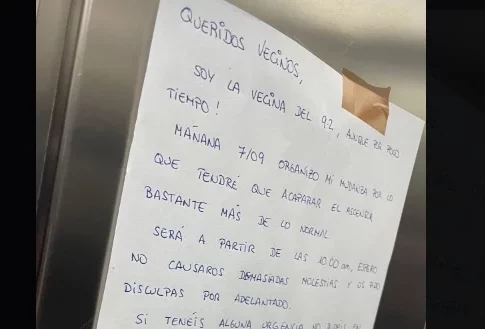 QUERIDOS VECINOS,
SOY LA VECINA DEL 9.2, AUNQUE POR POCO
TIEMPO!
MAÑANA 7/09 ORGANIZO MI MUDANZA POR LO
QUE TENDRÉ QUE ACAPARAR EL ASCENSOR
BASTANTE MÁS DE LO NORMAL.
SERÁ A PARTIR DE LAS 10:00 am, ESPERO
NO CAUSAROS DEMASIADAS MOLESTIAS Y OS PIDO
DISCULPAS POR ADELANTADO.
SI TENÉIS ALGUNA URGENCIA NO